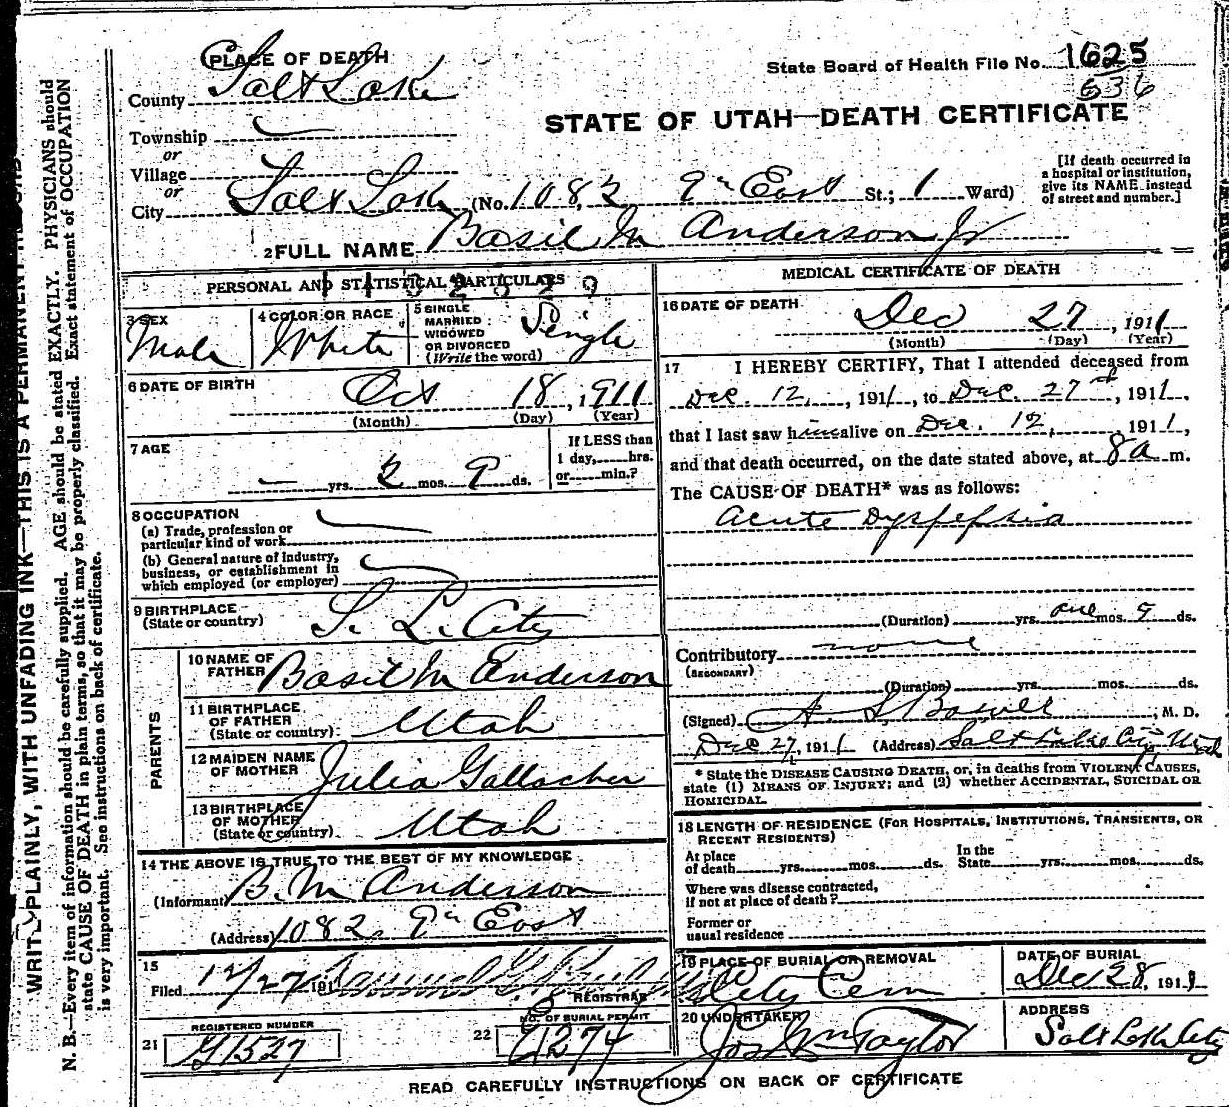 PLACE OF DEATH
State Board of Health File No. 1625
636
County Salt Lake
STATE OF UTAH—DEATH CERTIFICATE
Township
or
Village
or
City Salt Lake (No. 1082 9th East St.; 1 Ward)
[If death occurred in
a hospital or institution,
give its NAME instead
of street and number.]
2 FULL NAME Basil M Anderson Jr
PERSONAL AND STATISTICAL PARTICULARS
3 SEX
Male
4 COLOR OR RACE
White
5 SINGLE
MARRIED
WIDOWED
OR DIVORCED
(Write the word)
Single
6 DATE OF BIRTH
Oct 18, 1911
(Month) (Day) (Year)
7 AGE
— yrs. 2 mos. 9 ds.
If LESS than
1 day, hrs.
or min.?
8 OCCUPATION
(a) Trade, profession or
particular kind of work
(b) General nature of industry,
business, or establishment in
which employed (or employer)
9 BIRTHPLACE
(State or country)
S. L. City
PARENTS
10 NAME OF
FATHER
Basil M Anderson
11 BIRTHPLACE
OF FATHER
(State or country)
Utah
12 MAIDEN NAME
OF MOTHER
Julia Gallacher
13 BIRTHPLACE
OF MOTHER
(State or country)
Utah
14 THE ABOVE IS TRUE TO THE BEST OF MY KNOWLEDGE
(Informant) B. M Anderson
(Address) 1082 9th East
15
Filed 12/27 191
REGISTRAR
REGISTERED NUMBER
21 G1527
NO. OF BURIAL PERMIT
22 G1274
MEDICAL CERTIFICATE OF DEATH
16 DATE OF DEATH
Dec 27, 1911
(Month) (Day) (Year)
17 I HEREBY CERTIFY, That I attended deceased from
Dec. 12, 1911, to Dec. 27th, 1911.
that I last saw him alive on Dec. 12, 1911,
and that death occurred, on the date stated above, at 8 a m.
The CAUSE OF DEATH* was as follows:
Acute Dyspepsia
(Duration) yrs. one mos. 9 ds.
Contributory none
(SECONDARY)
(Duration) yrs. mos. ds.
(Signed) A. S. , M. D.
Dec 27, 1911 (Address) Salt Lake City Utah
* State the DISEASE CAUSING DEATH, or, in deaths from VIOLENT CAUSES,
state (1) MEANS OF INJURY; and (2) whether ACCIDENTAL, SUICIDAL OR
HOMICIDAL.
18 LENGTH OF RESIDENCE (FOR HOSPITALS, INSTITUTIONS, TRANSIENTS, OR
RECENT RESIDENTS)
At place
of death yrs. mos. ds.
In the
State yrs. mos. ds.
Where was disease contracted,
if not at place of death?
Former or
usual residence
19 PLACE OF BURIAL OR REMOVAL
City Cem
DATE OF BURIAL
Dec 28, 1911
20 UNDERTAKER
Jos Wm Taylor
ADDRESS
Salt Lake City
READ CAREFULLY INSTRUCTIONS ON BACK OF CERTIFICATE
WRITE PLAINLY, WITH UNFADING INK—THIS IS A PERMANENT
N. B.—Every item of information should be carefully supplied. AGE should be stated EXACTLY. PHYSICIANS should
state CAUSE OF DEATH in plain terms, so that it may be properly classified. Exact statement of OCCUPATION
is very important. See instructions on back of certificate.